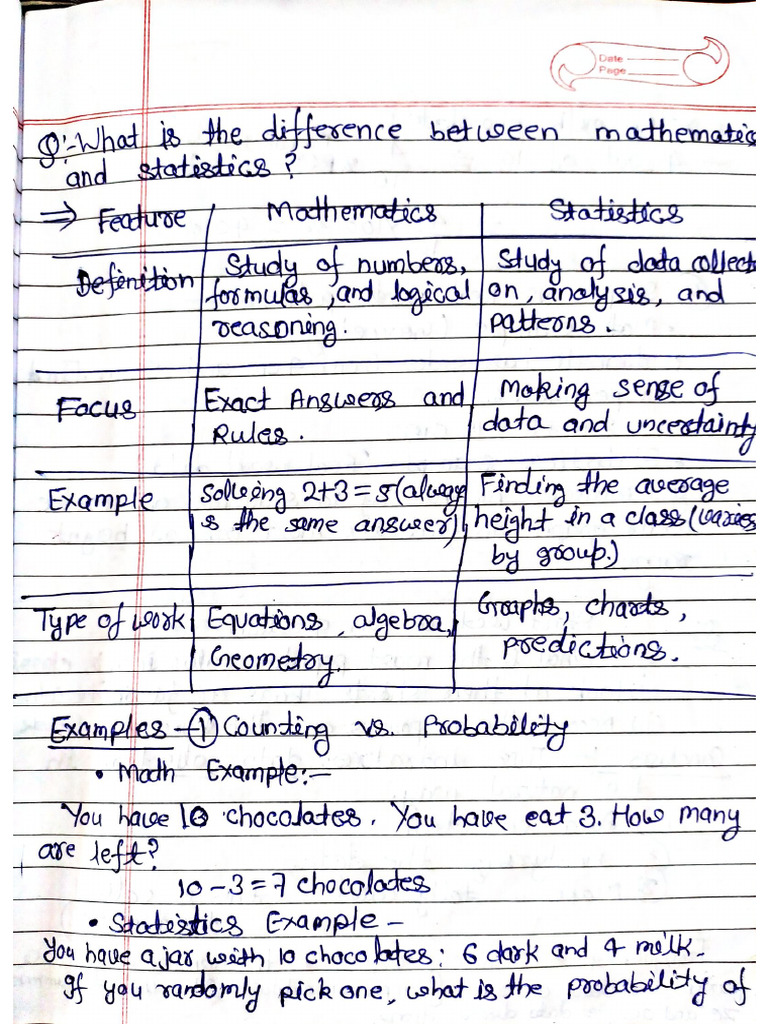 Date
Page
Q:- What is the difference between mathematics
and statistics?
⇒ Feature | Mathematics | Statistics
Definition | Study of numbers, | Study of data collect
formulas, and logical | on, analysis, and
reasoning. | patterns.
Focus | Exact Answers and | Making sense of
Rules. | data and uncertainty
Example | Solving 2+3=5 (always | Finding the average
is the same answer) | height in a class (varies
by group.)
Type of work | Equations, algebra, | Graphs, charts,
Geometry. | predictions.
Examples - ① Counting vs. Probability
• Math Example:-
You have 10 chocolates. You have eat 3. How many
are left?
10 - 3 = 7 chocolates
• Statistics Example -
You have a jar with 10 chocolates: 6 dark and 4 milk.
If you randomly pick one, what is the probability of